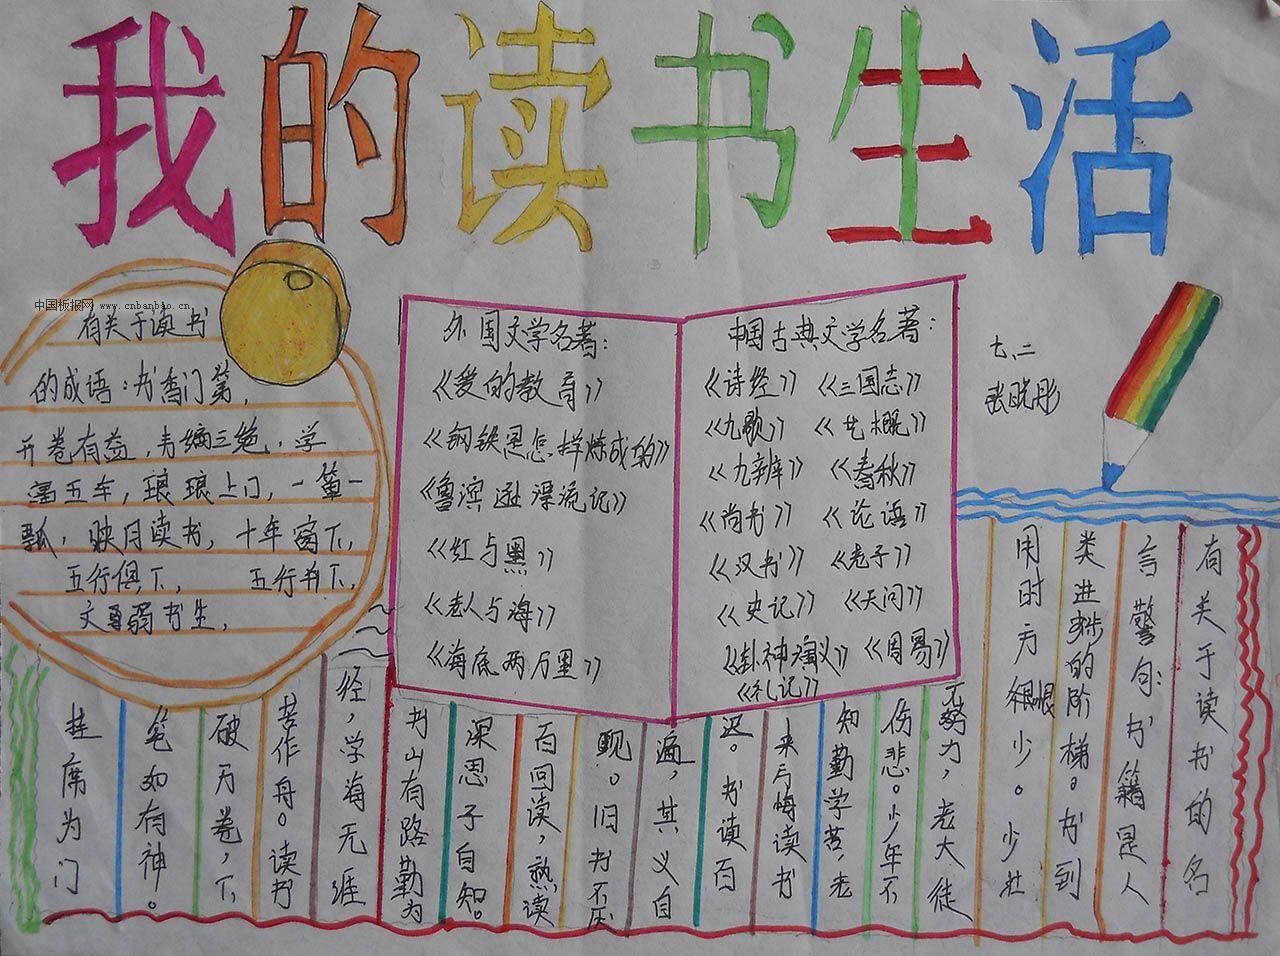 我的读书生活
中国板报网 www.cnbanbao.cn
有关于读书
的成语：书香门第，
开卷有益，韦编三绝，学
富五车，琅琅上口，一箪一
瓢，映月读书，十年窗下，
五行俱下， 五行并下，
文弱书生，
外国文学名著：
《爱的教育》
《钢铁是怎样炼成的》
《鲁滨逊漂流记》
《红与黑》
《老人与海》
《海底两万里》
中国古典文学名著：
《诗经》 《三国志》
《九歌》 《艺概》
《九辨》 《春秋》
《尚书》 《论语》
《汉书》 《老子》
《史记》 《天问》
《封神演义》 《周易》
《礼记》
七、二
张晓彤
有关于读书的名
言警句：书籍是人
类进步的阶梯。书到
用时方恨少。少壮
无努力，老大徒
伤悲。少年不
知勤学苦，老
来与悔读书
迟。书读百
遍，其义自
现。旧书不厌
百回读，熟读
深思子自知。
书山有路勤为
经，学海无涯
苦作舟。读书
破万卷，下
笔如有神。
挂席为门